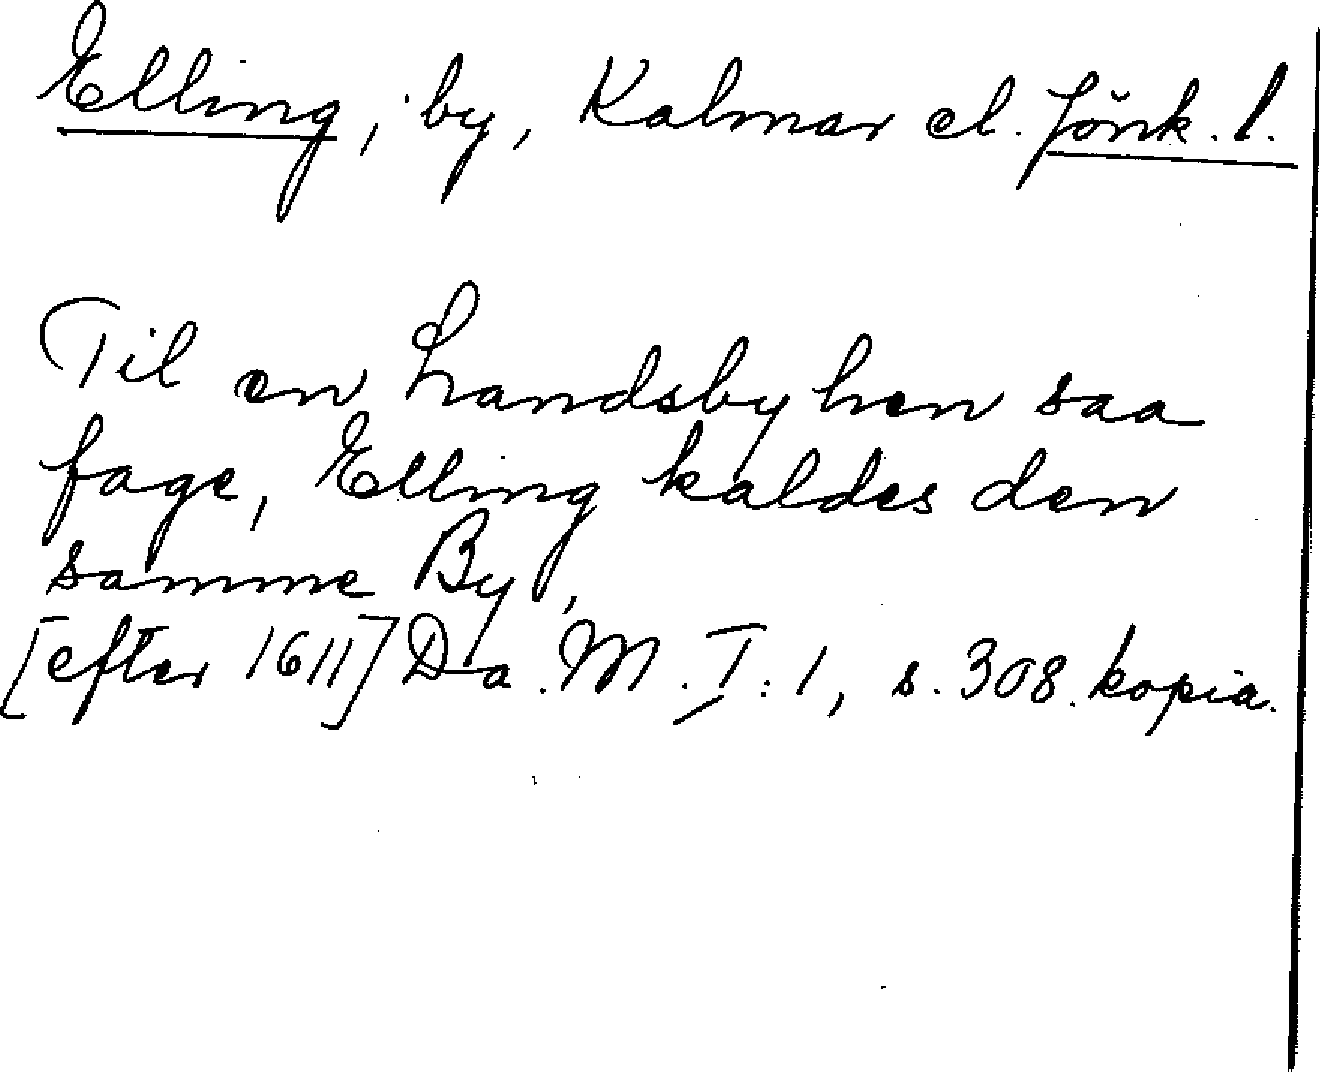 Elling, by, Kalmar el. Jönk. l.
Til en Landsby hen saa
fage, Elling kaldes den
samme By,
[efter 1611] Da. M. I: 1, s. 308. kopia.